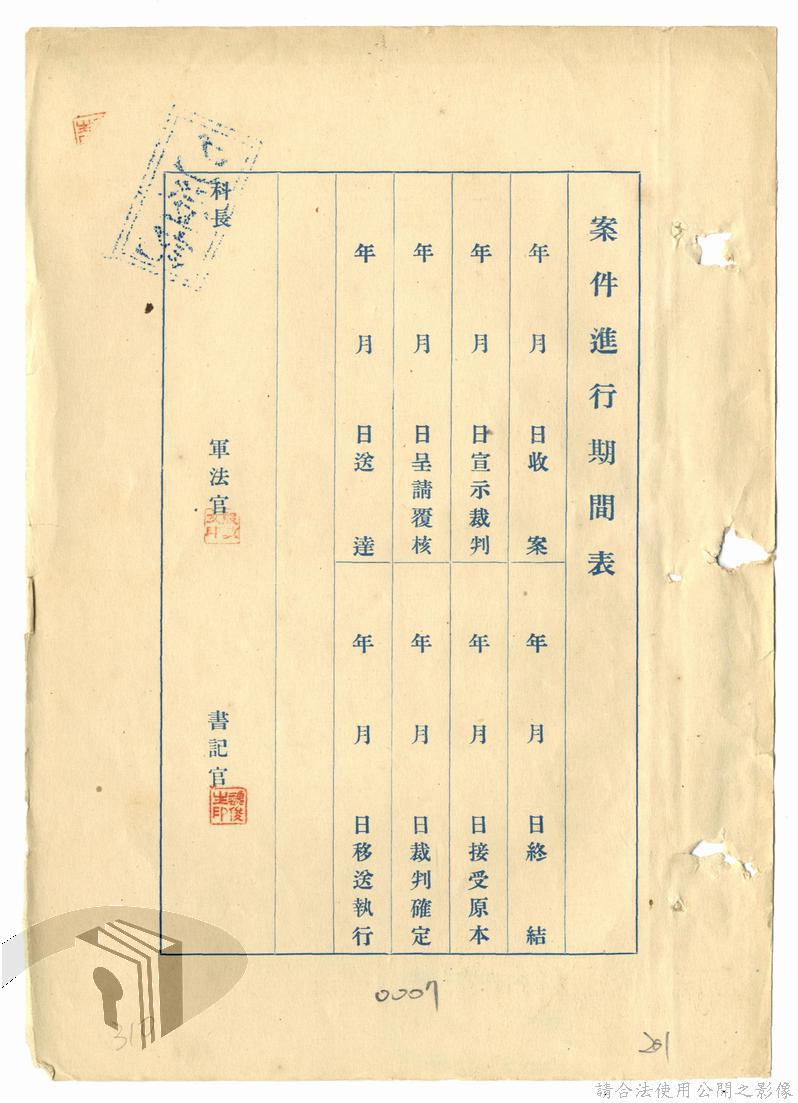 案件進行期間表
年 月 日收案
年 月 日終結
年 月 日宣示裁判
年 月 日接受原本
年 月 日呈請覆核
年 月 日裁判確定
年 月 日送達
年 月 日移送執行
科長
軍法官
書記官
魏俊生印
0007
319
201
請合法使用公開之影像